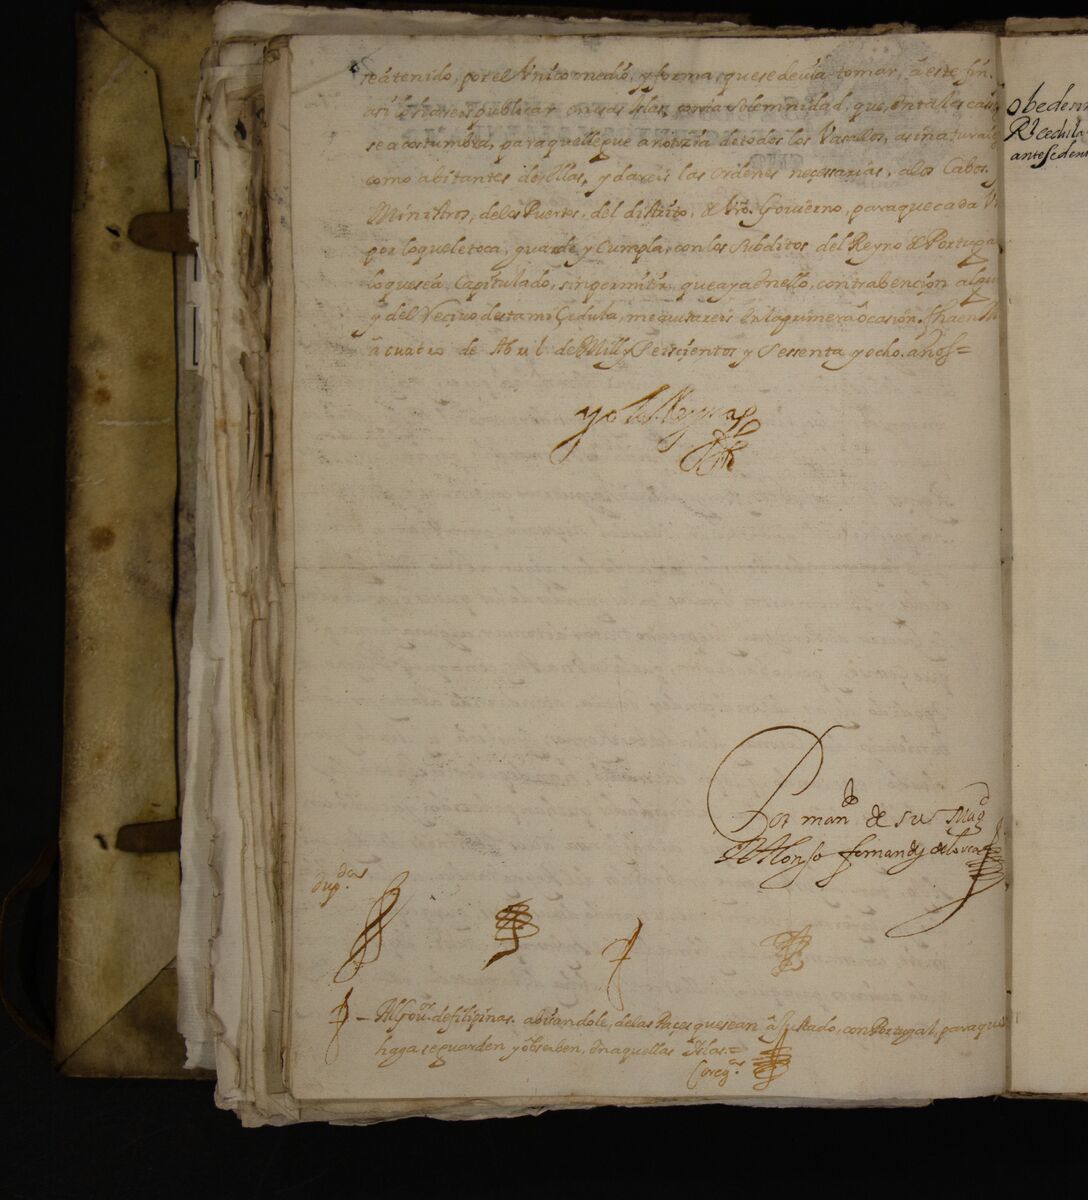 tratenido, por el Vnico medio, y forma, que se devia tomar, â este fin.
asi lo hareis publicar en esas Islas, con la Solemnidad, que, en tales cas
se acostumbra, para que llegue a notizia de todos los Vasallos, asi naturale
como abitantes de ellas, y dareis las ordenes neçessarias, a los Cabos,
Ministros, de los Puertos, del distrito, de Vro. Govierno, para que cada
por lo que le toca, guarde y Cumpla, con los Subditos del Reyno de Portuga
lo que seá Capitulado, sin permitir, que aya en ello, contrabençion algu
y del Reçivo desta mi Çedula, me avisareis en la primera ocasion. fha en M
â cuatro de Abril de Mill y Seisçientos y Sessenta y ocho. años=
yo la Reyna
Por mando de su Magd
D Alonso fernandez de lorca
dupda
Al Gouor. de filipinas. abisandole, de las Paçes que se an âjustado, con Portugal, para que
haga se guarden y observen, en aquellas Yslas.=
Coregda
obedesim
Rl cedula
antesedent